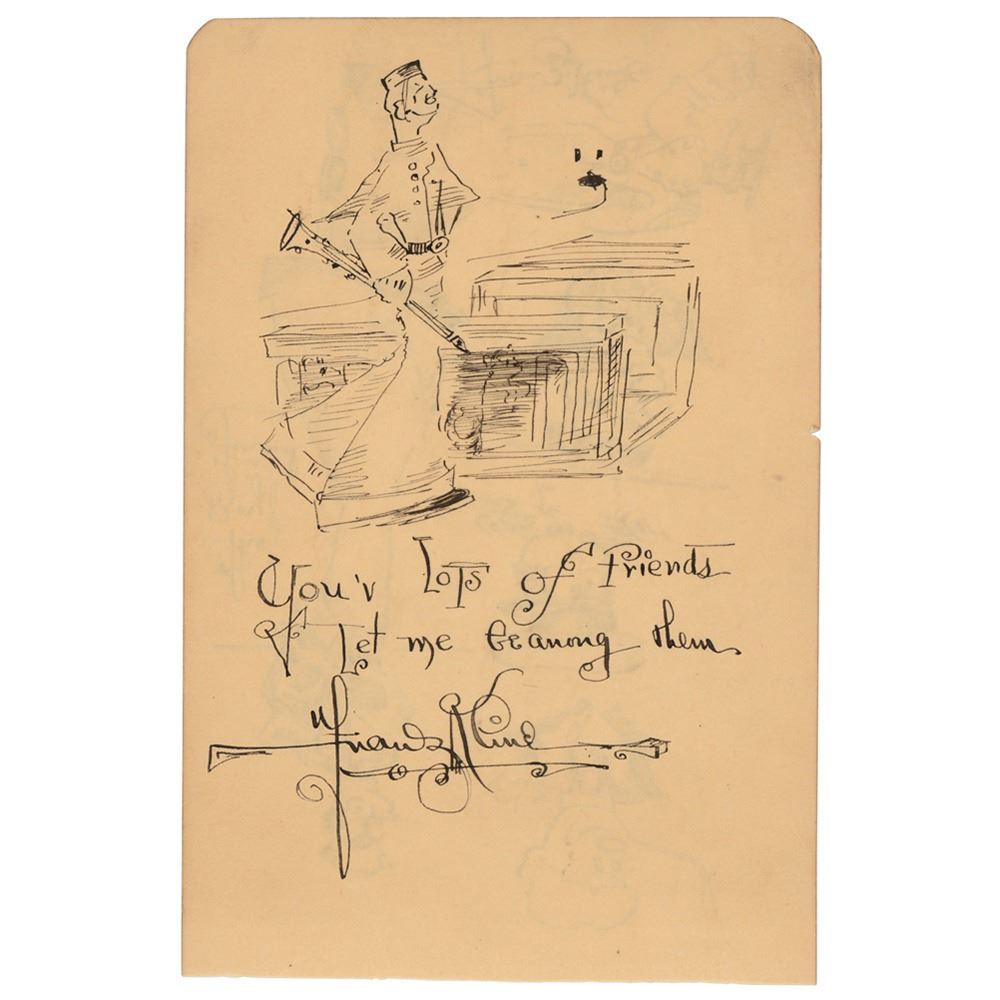 You'v Lots of Friends
Let me be among them
Franz Kline